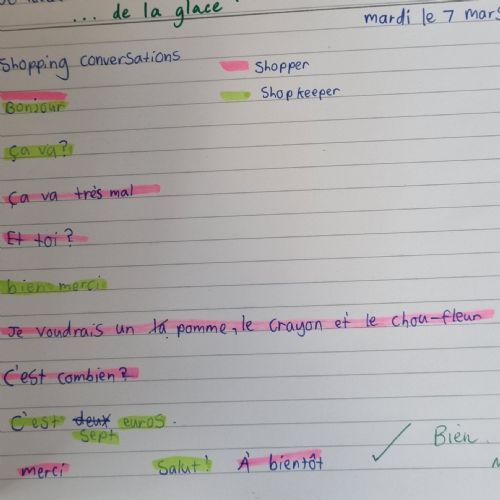 ... de la glace
mardi le 7 mars
Shopping conversations
Shopper
Shopkeeper
Bonjour
Ça va?
Ça va très mal
Et toi?
bien merci
Je voudrais un la pomme, le crayon et le chou-fleur
C'est combien?
C'est deux euros.
sept
merci Salut! À bientôt
Bien.